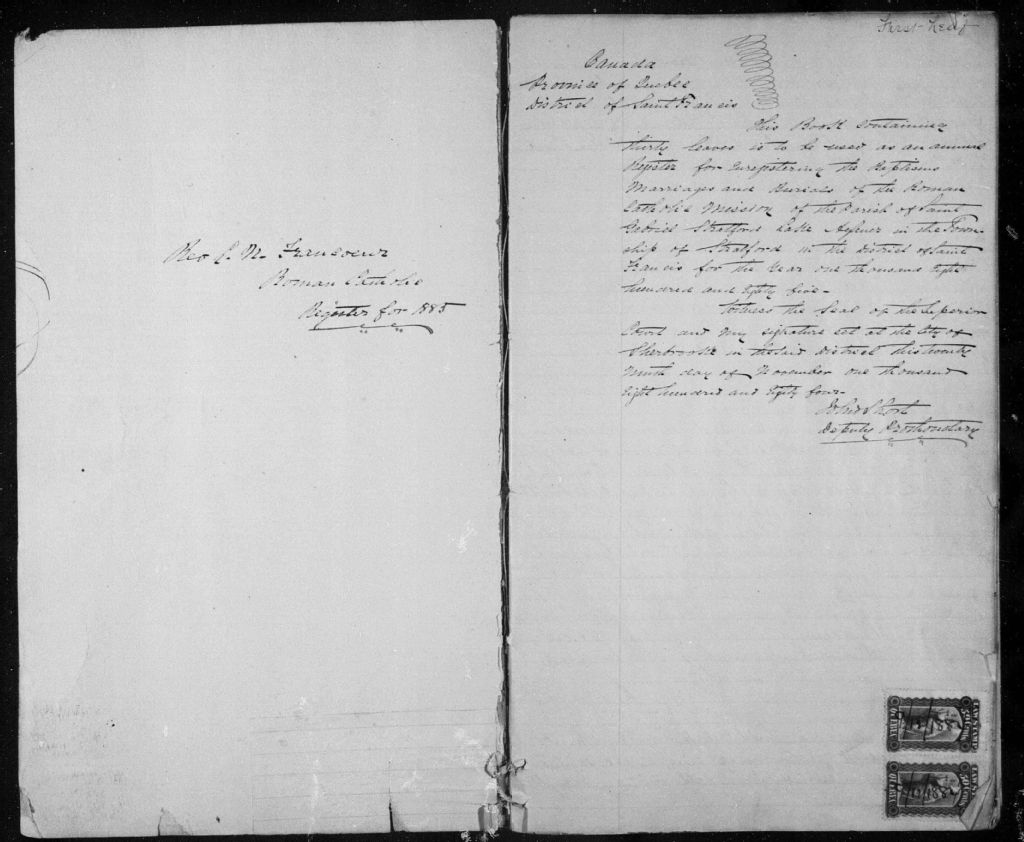 Rev J. N. Francoeur
Roman Catholic
Register for 1885
First Leaf
Canada
Province of Quebec
District of Saint Francis
This Book containing
thirty leaves is to be used as an annual
Register for Enregistering the Baptisms
Marriages and Burials of the Roman
Catholic Mission of the Parish of Saint
Gabriel Stratford Lake Aylmer in the Town-
ship of Stratford in the District of Saint
Francis for the Year one thousand Eight
hundred and Eighty five-
Witness the Seal of the Superior
Court and my signature set at the City of
Sherbrooke in the said District this twenty
Ninth day of November one thousand
Eight hundred and Eighty four-
John Short
Deputy Prothonotary
LAW STAMP
QUEBEC
LAW ST
QUEBEC